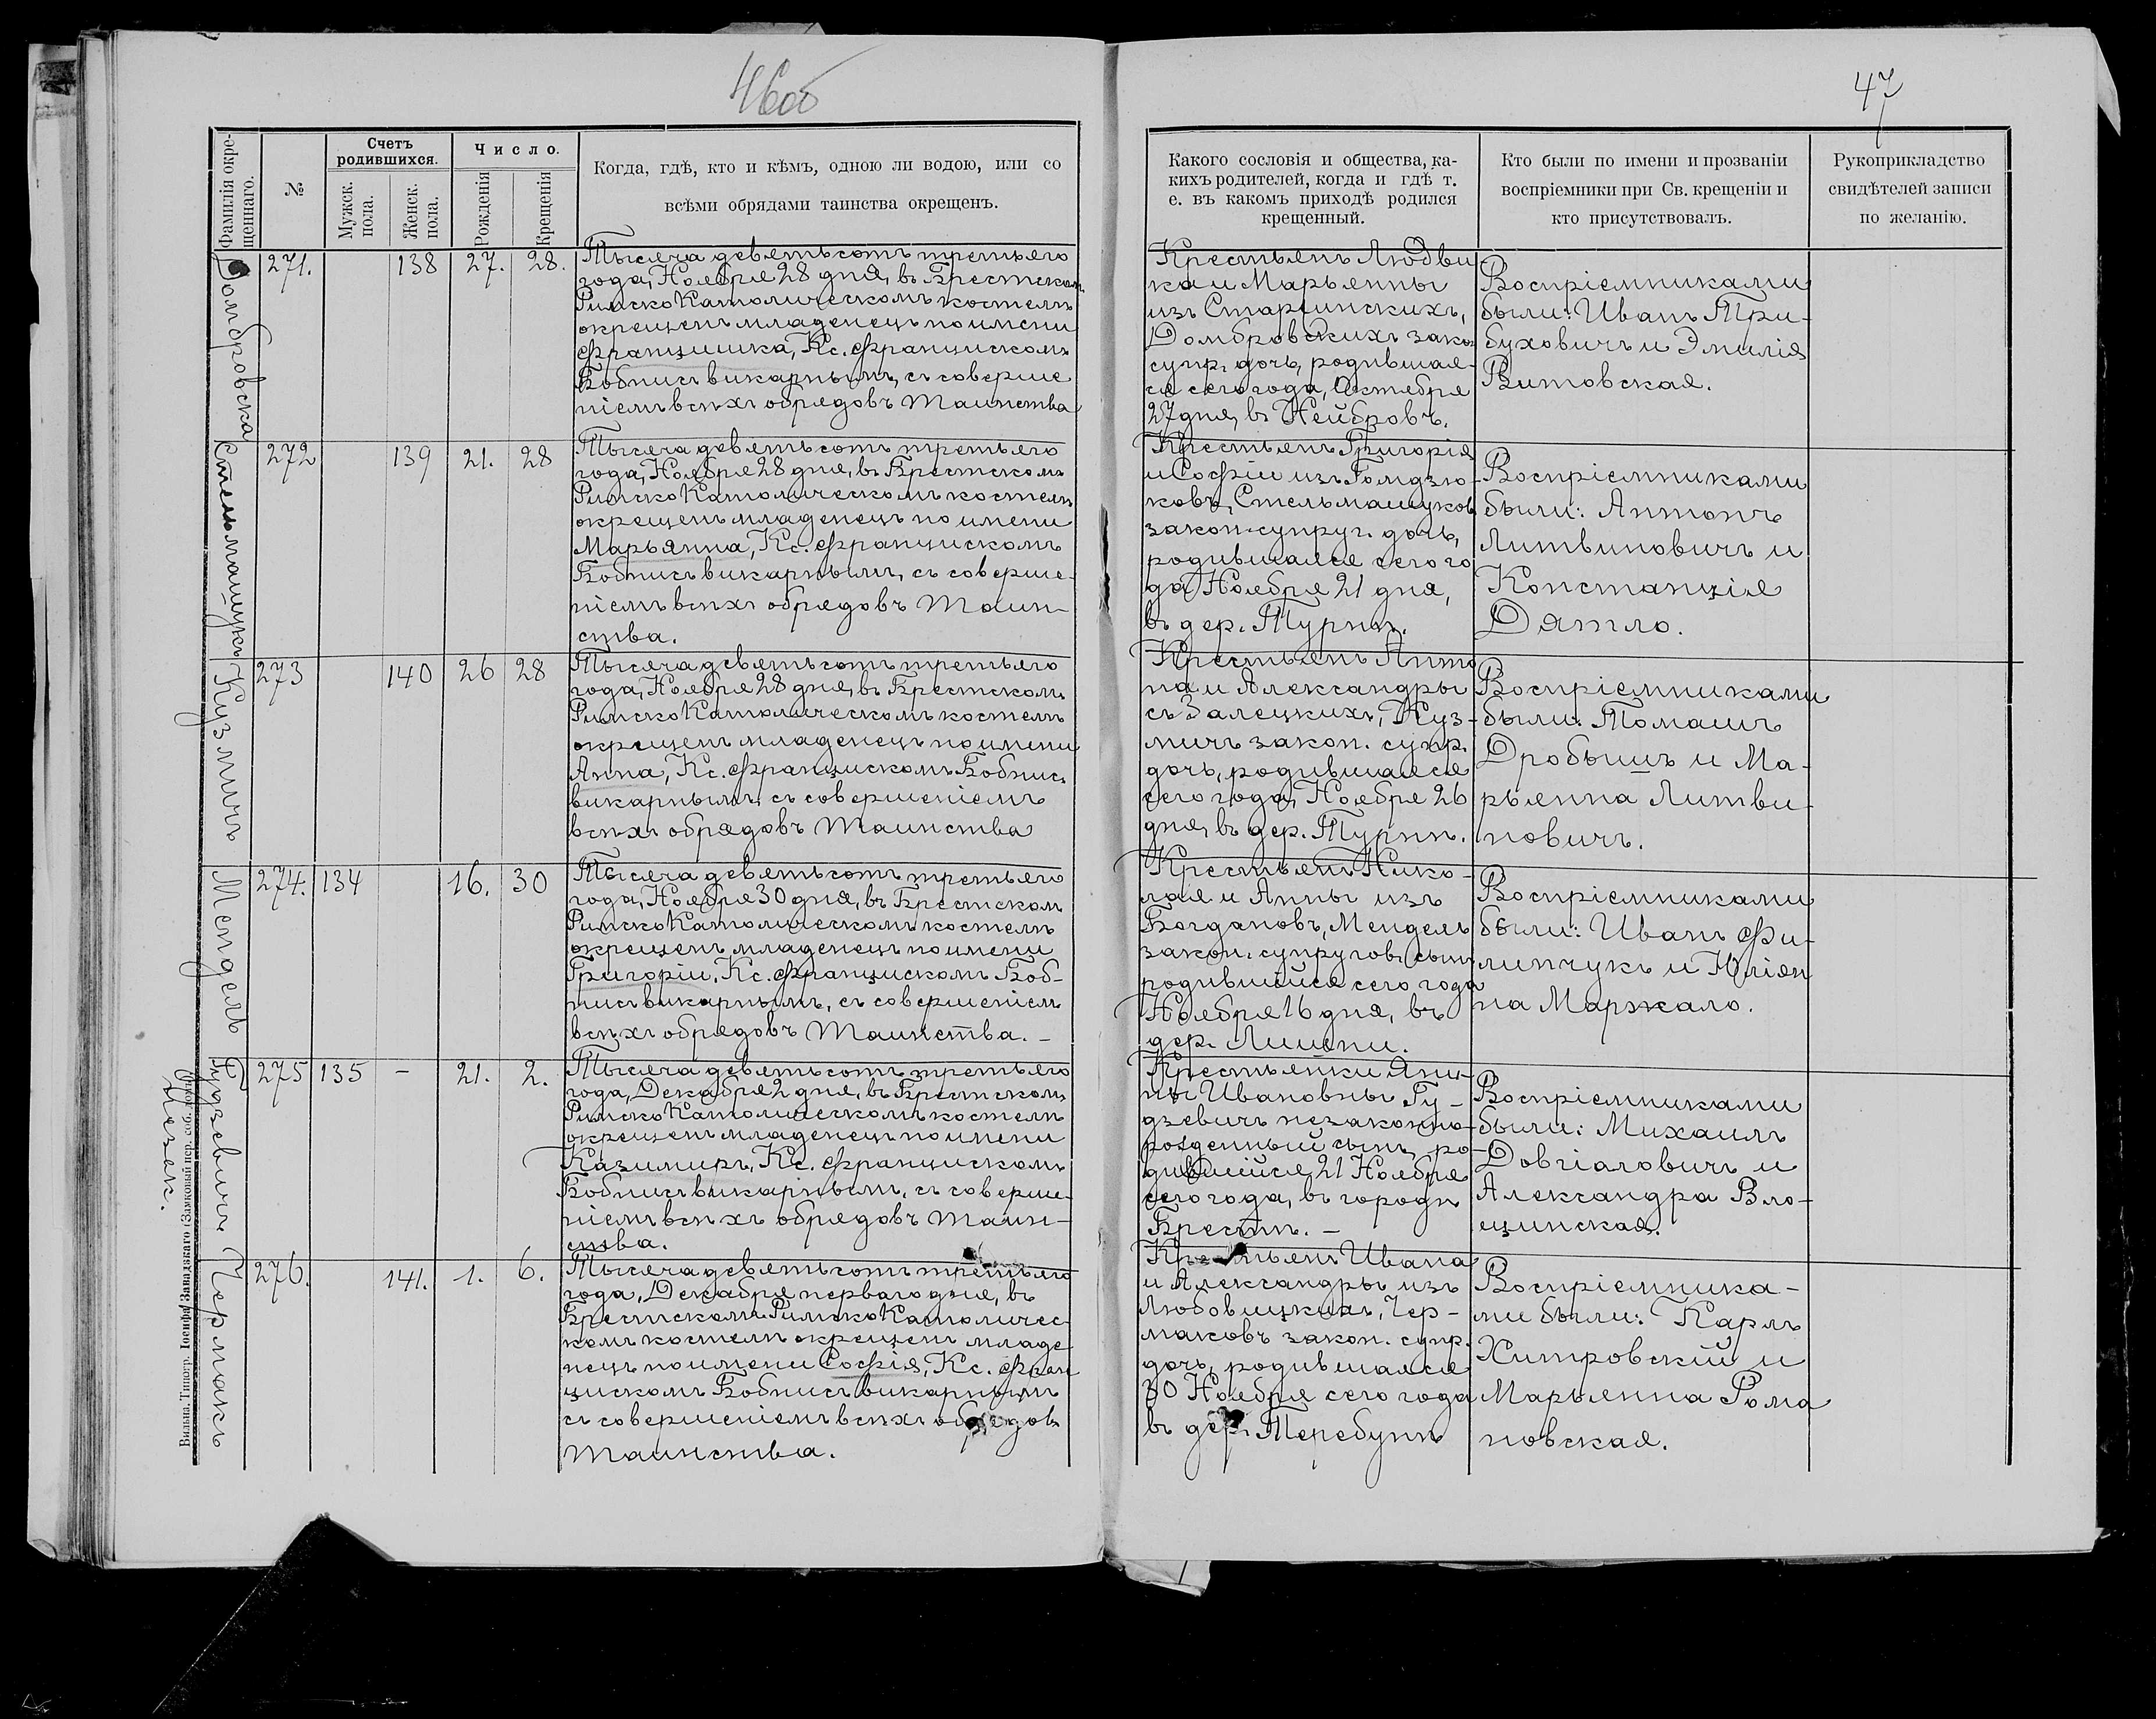 46об
47
Фамилія окре-
щеннаго.
№
Счетъ
родившихся.
Мужск.
пола.
Женск.
пола.
Число.
Рожденія
Крещенія
Когда, гдѣ, кто и кѣмъ, одною ли водою, или со
всѣми обрядами таинства окрещенъ.
Какого сословія и общества, ка-
кихъ родителей, когда и гдѣ т.
е. въ какомъ приходѣ родился
крещенный.
Кто были по имени и прозванію
воспріемники при Св. крещеніи и
кто присутствовалъ.
Рукоприкладство
свидѣтелей записи
по желанію.
Домбровска
271.
138
27.
28.
Тысяча девятьсотъ третьяго
года, Ноября 28 дня, въ Брестском
Римско Католическомъ костелѣ
окрещенъ младенецъ по имени
Францишка, Кс. Францискомъ
Бобнисъ викарнымъ, съ соверше
ніемъ всѣхъ обрядовъ Таинства
Крестьянъ Людви
ка и Марьянны
изъ
Домбровскихъ зако.
супр. дочь, родившая-
ся сего года, Октября
27 дня, въ Нейбровъ.
Воспріемниками
были: Иванъ Три-
буховичъ и Эмилія
Витовская.
Стельмащукъ
272
139
21.
28
Тысяча девятьсотъ третьяго
года, Ноября 28 дня, въ Брестскомъ
Римско Католическомъ костелѣ
окрещенъ младенецъ по имени
Марьянна, Кс. Францискомъ
Бобнисъ викарнымъ, съ соверше-
ніемъ всѣхъ обрядовъ Таин-
ства.
Крестьянъ Григорія
и Софіи изъ Гомдзю-
ковъ, Стельмащуков
закон. супруг. дочь,
родившаяся сего го
да Ноября 21 дня,
въ дер. Турнѣ.
Воспріемниками
были: Антонъ
Литвиновичъ и
Констанція
Дятло.
Кузмичъ
273
140
26
28
Тысяча девятьсотъ третьяго
года, Ноября 28 дня, въ Брестскомъ
Римско Католическомъ костелѣ
окрещенъ младенецъ по имени
Анна, Кс. Францискомъ Бобнисъ
викарнымъ, съ совершеніемъ
всѣхъ обрядовъ Таинства
Крестьянъ Анто
на и Александры
съ Залецкихъ, Куз-
мичъ закон. супр.
дочь, родившаяся
сего года, Ноября 26
дня, въ дер. Турнѣ.
Воспріемниками
были: Томашъ
Дробышъ и Ма-
рьянна Литви-
новичъ.
Мендель
274.
134
16.
30
Тысяча девятьсотъ третьяго
года, Ноября 30 дня, въ Брестском
Римско Католическомъ костелѣ
окрещенъ младенецъ по имени
Григорій, Кс. Францискомъ Боб-
нисъ викарнымъ, съ совершеніем
всѣхъ обрядовъ Таинства. -
Крестьянъ Нико-
лая и Анны изъ
Богдановъ, Мендель
закон. супруговъ сынъ
родившійся сего года
Ноября 16 дня, въ
дер.
Воспріемниками
были: Иванъ Фи-
липчукъ и Юліян
на Маржало.
Гудзевичъ
275
135
-
21.
2.
Тысяча девятьсотъ третьяго
года, Декабря 2 дня, въ Брестскомъ
Римско Католическомъ костелѣ
окрещенъ младенецъ по имени
Казимиръ, Кс. Францискомъ
Бобнисъ викарнымъ, съ соверше-
ніемъ всѣхъ обрядовъ Таин-
ства.
Крестьянки Яни-
ны Ивановны Гу-
дзевичъ незаконно-
рожденный сынъ, ро-
дившійся 21 Ноября
сего года, въ городѣ
Брестѣ. -
Воспріемниками
были: Михаилъ
Довгіаловичъ и
Александра Вло-
щинская.
Незак.
Чермакъ
276.
141.
1.
6.
Тысяча девятьсотъ третьяго
года, Декабря перваго дня, въ
Брестскомъ Римско Католичес-
комъ костелѣ окрещенъ младе-
нецъ по имени Софія, Кс. Фран
цискомъ Бобнисъ викарнымъ
съ совершеніемъ всѣхъ обрядовъ
Таинства.
Крестьянъ Ивана
и Александры изъ
Любовицкихъ, Чер-
маковъ закон. супр.
дочь, родившаяся
30 Ноября сего года
въ дер. Теребунѣ
Воспріемника-
ми были: Карлъ
Хитровскій и
Марьянна Рома
новская.
Вильна. Типогр. Іосифа Завадзкаго (Замковый пер. соб. домъ)